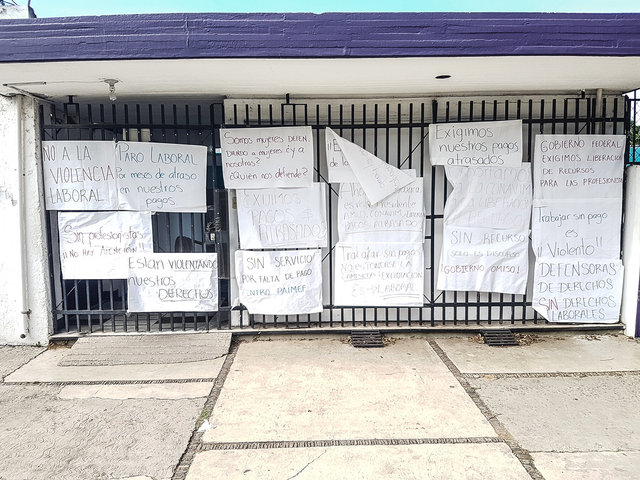 NO A LA
VIOLENCIA
LABORAL
PARO LABORAL
Por meses de atraso
en nuestros
pagos
Sin profesionistas
¡¡No hay atención!!
Están VIOLENTANDO
nuestros
DERECHOS
Somos mujeres DEFEN
DIENDO a mujeres ¿y a
nosotras?
¿Quien nos defiende?
EXIJIMOS
PAGO
ATRASADO
SIN SERVICIO
POR FALTA DE PAGO
PAIMEF
de la
presidente
AMLO, CONAVIM,
ATRASADO
Trabajar sin pago
LABORAL
Exigimos
nuestros pagos
atrasados
SIN RECURSO
SOLO ES DISCURSO
¡GOBIERNO OMISO!
GOBIERNO FEDERAL
EXIGIMOS LIBERACIÓN
DE RECURSOS
PARA LAS PROFESIONISTAS
Trabajar sin pago
es
¡¡Violento!!
DEFENSORAS
DE DERECHOS
SIN DERECHOS
LABORALES